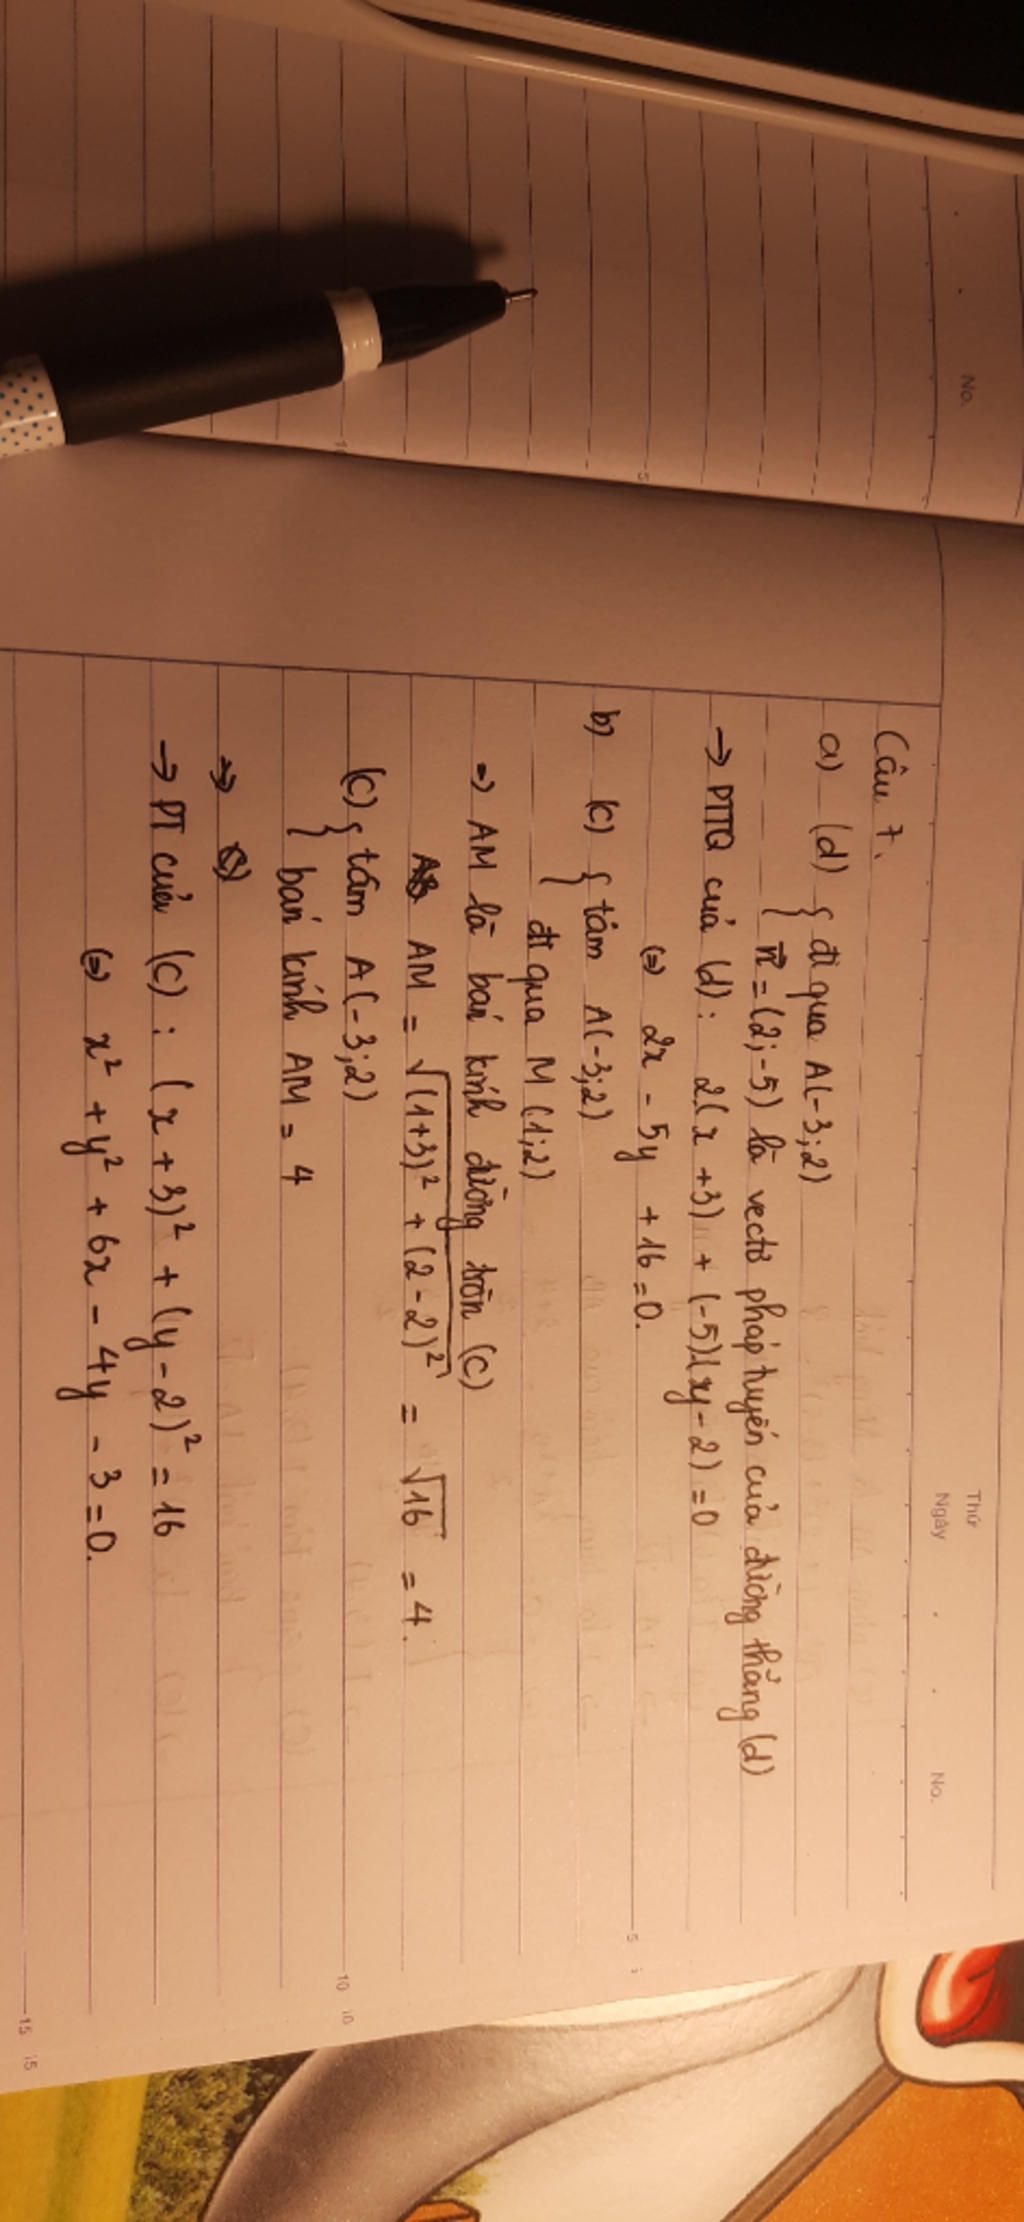 No.
5
Thứ
Ngày
No.
Câu 7.
a) (d) { đi qua A(-3;2)
n⃗ = (2;-5) là vectơ pháp tuyến của đường thẳng (d)
→ PTTQ của (d): 2(x+3) + (-5).(y-2) = 0
(=) 2x - 5y + 16 = 0.
5
b) (C) { tâm A(-3;2)
đi qua M(1;2)
=) AM là bán kính đường tròn (C)
AM = √(1+3)² + (2-2)² = √16 = 4.
(C) { tâm A(-3;2)
10 10
bán kính AM = 4
→ PT của (C): (x+3)² + (y-2)² = 16
(=) x² + y² + 6x - 4y - 3 = 0.
15 15